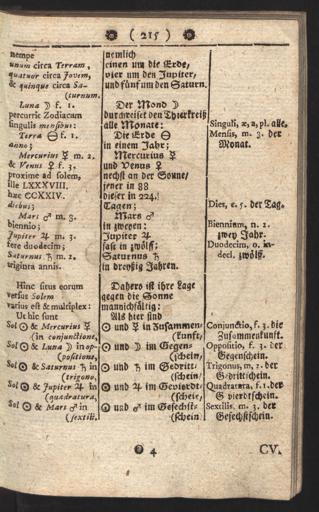 ( 215 )
nempe
unum circa Terram,
quatuor circa Jovem,
& quinque circa Sa-
(turnum.
Luna ☽ f. 1.
percurrit Zodiacum
singulis mensibus:
Terra ⊖ f. 1.
anno;
Mercurius ☿ m. 2.
& Venus ♀ f. 3.
proxime ad solem,
ille LXXXVIII.
hæc CCXXIV.
diebus;
Mars ♂ m. 3.
biennio;
Jupiter ♃ m. 3.
fere duodecim;
Saturnus ♄ m. 2.
triginta annis.
Hinc situs eorum
versus Solem
varius est & multiplex:
Ut hic sunt
Sol ☉ & Mercurius ☿
(in conjunctione,
Sol ☉ & Luna ☽ in op-
(positione,
Sol ☉ & Saturnus ♄ in
(trigono,
Sol ☉ & Jupiter ♃ in
(quadratura,
Sol ☉ & Mars ♂ in
(sextili.
nemlich
einen um die Erde,
vier um den Jupiter,
und fünf um den Saturn.
Der Mond ☽
durchreiset den Thierkreiß
alle Monate:
Die Erde ⊖
in einem Jahr;
Mercurius ☿
und Venus ♀
nechst an der Sonne/
jener in 88
dieser in 224.
Tagen;
Mars ♂
in zweyen:
Jupiter ♃
fast in zwölf;
Saturnus ♄
in dreyßig Jahren.
Dahero ist ihre Lage
gegen die Sonne
mannichfältig:
Als hier sind
☉ und ☿ in Zusammen-
(kunft/
☉ und ☽ im Gegen-
(schein,
☉ und ♄ im Gedritt-
(schein/
☉ und ♃ im Gevierdt-
(schein/
☉ und ♂ im Gesechst-
(schein
Singuli, æ, a, pl. alle.
Mensis, m. 3. der
Monat.
Dies, e. 5. der Tag.
Biennium, n. 2.
zwey Jahr.
Duodecim, o. in-
decl. zwölf.
Conjunctio, f. 3. die
Zusammenkunft.
Oppositio, f. 3. der
Gegenschein.
Trigonus, m, 2. der
Gedrittschein.
Quadratura, f. 1. der
Gevierdtschein.
Sextilis. m. 3. der
Gesechstschein.
4
CV.